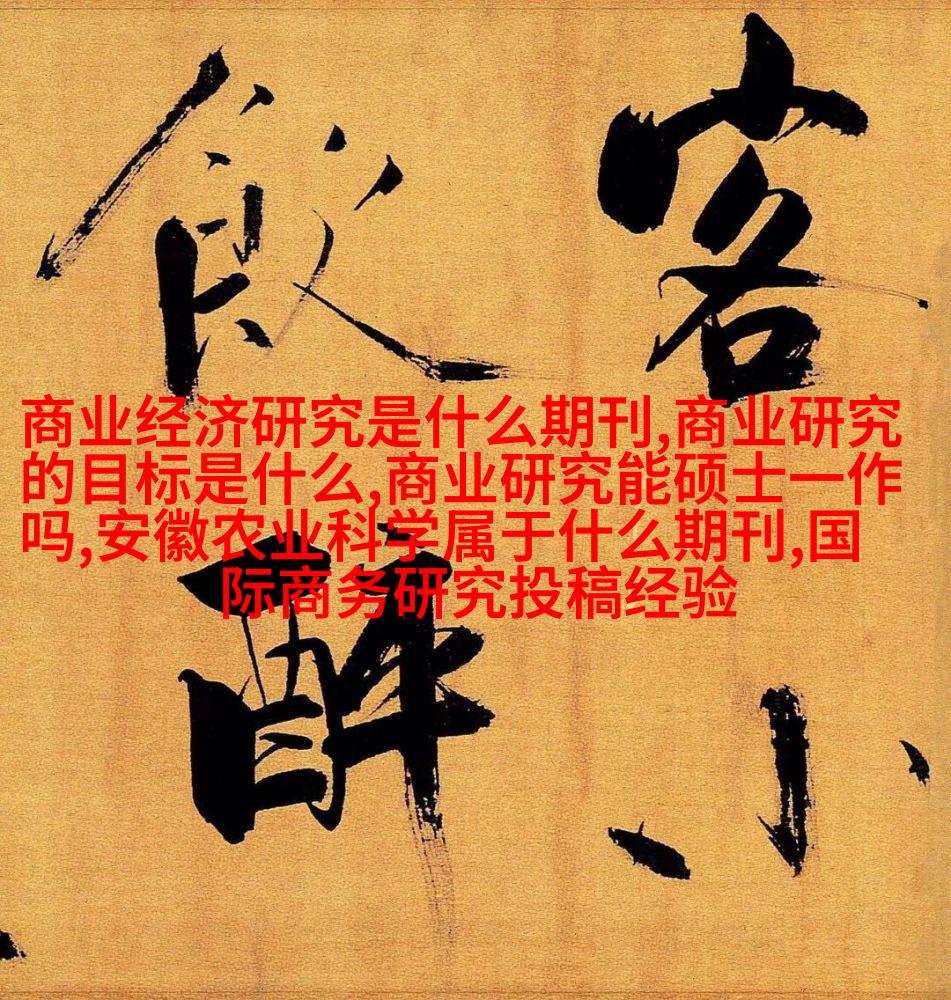 客小
飲酔
商业经济研究是什么期刊,商业研究
的目标是什么,商业研究能硕士一作
吗,安徽农业科学属于什么期刊,国
际商务研究投稿经验